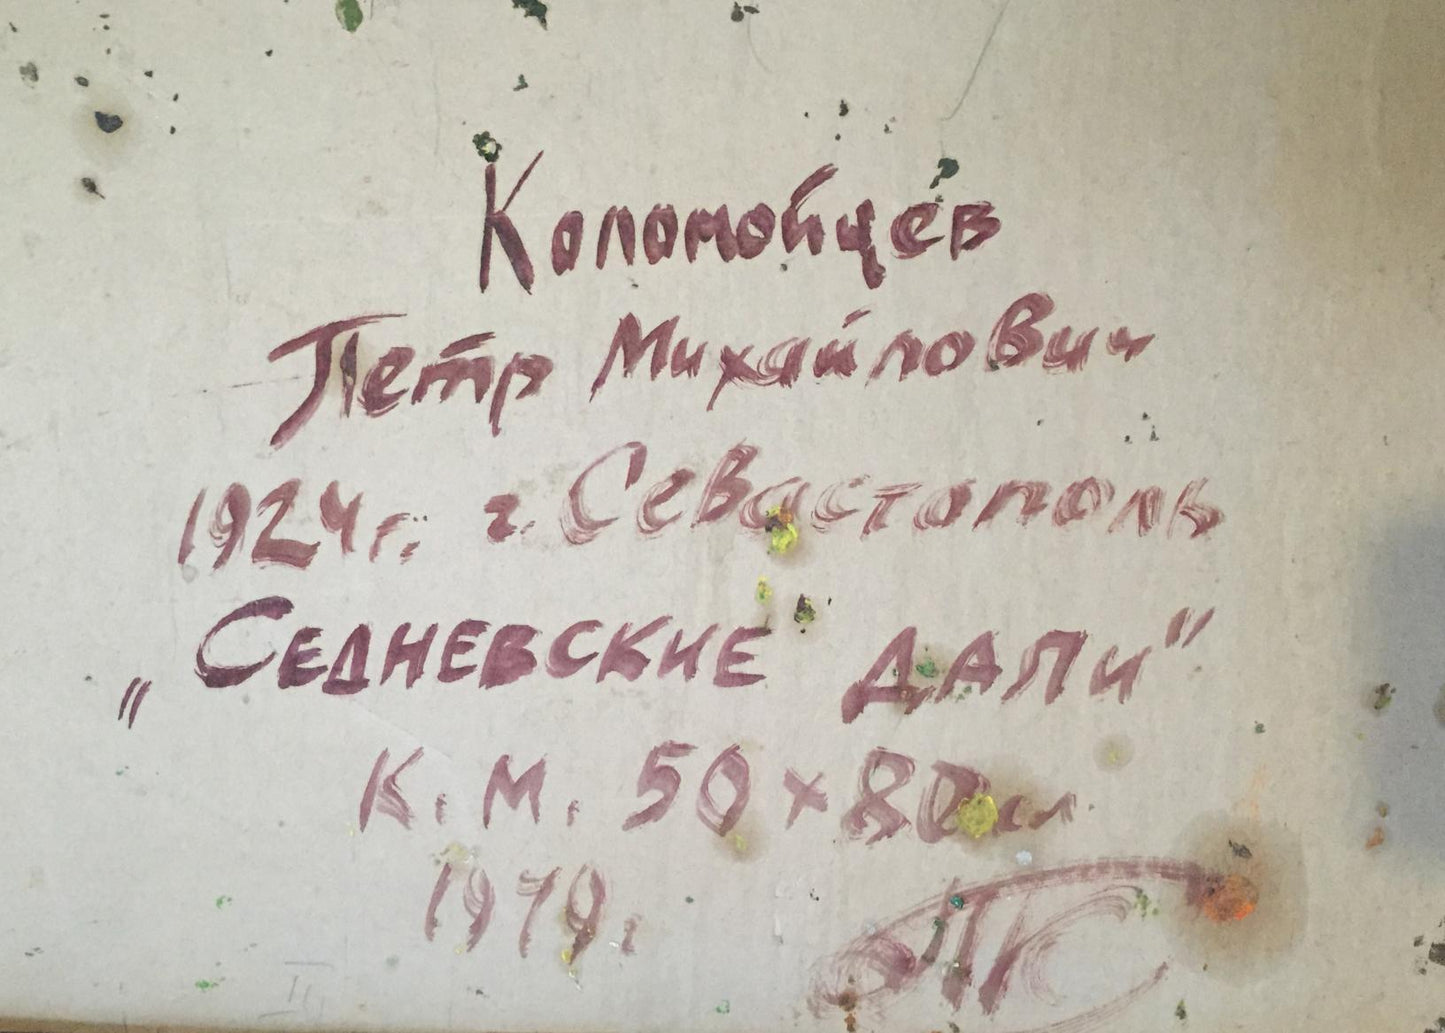 Коломойцев
Петр Михайлович
1924 г. г. Севастополь
"Седневские дали"
К. М. 50 х 80 см
1979 г